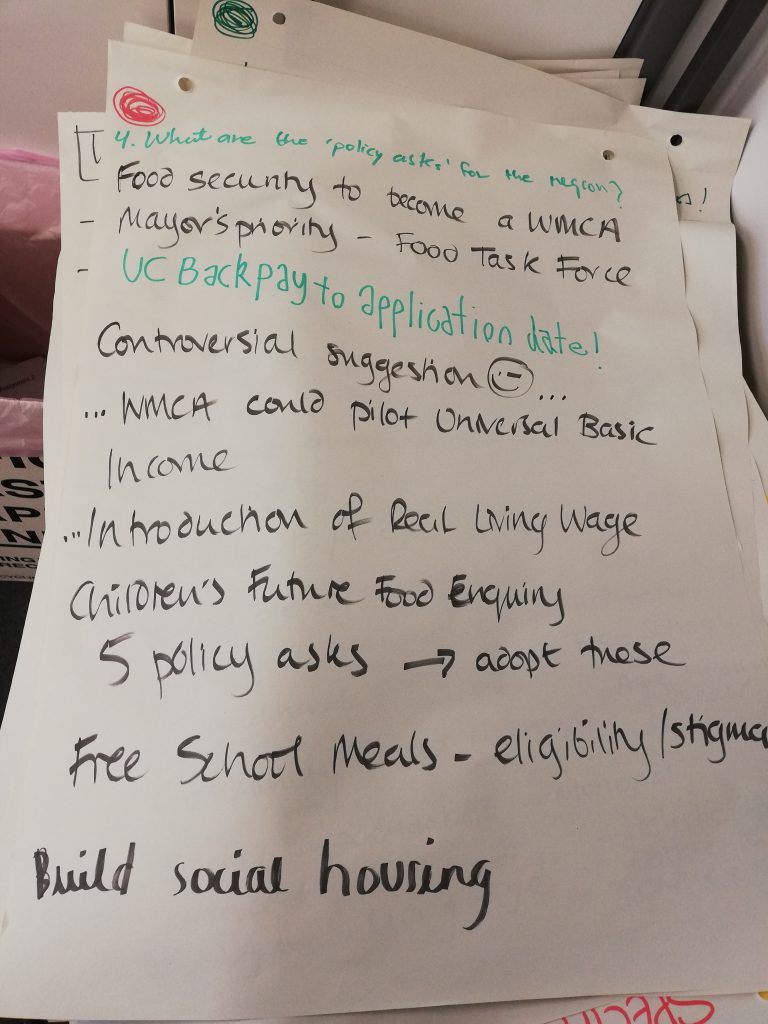 4. What are the 'policy asks' for the region?
Food security to become a WMCA
- Mayor's priority - Food Task Force
- UC Backpay to application date!
Controversial suggestion ...
... WMCA could pilot Universal Basic
Income
...Introduction of Real Living Wage
Children's Future Food Enquiry
5 policy asks → adopt these
Free School Meals - eligibility/stigma
Build social housing